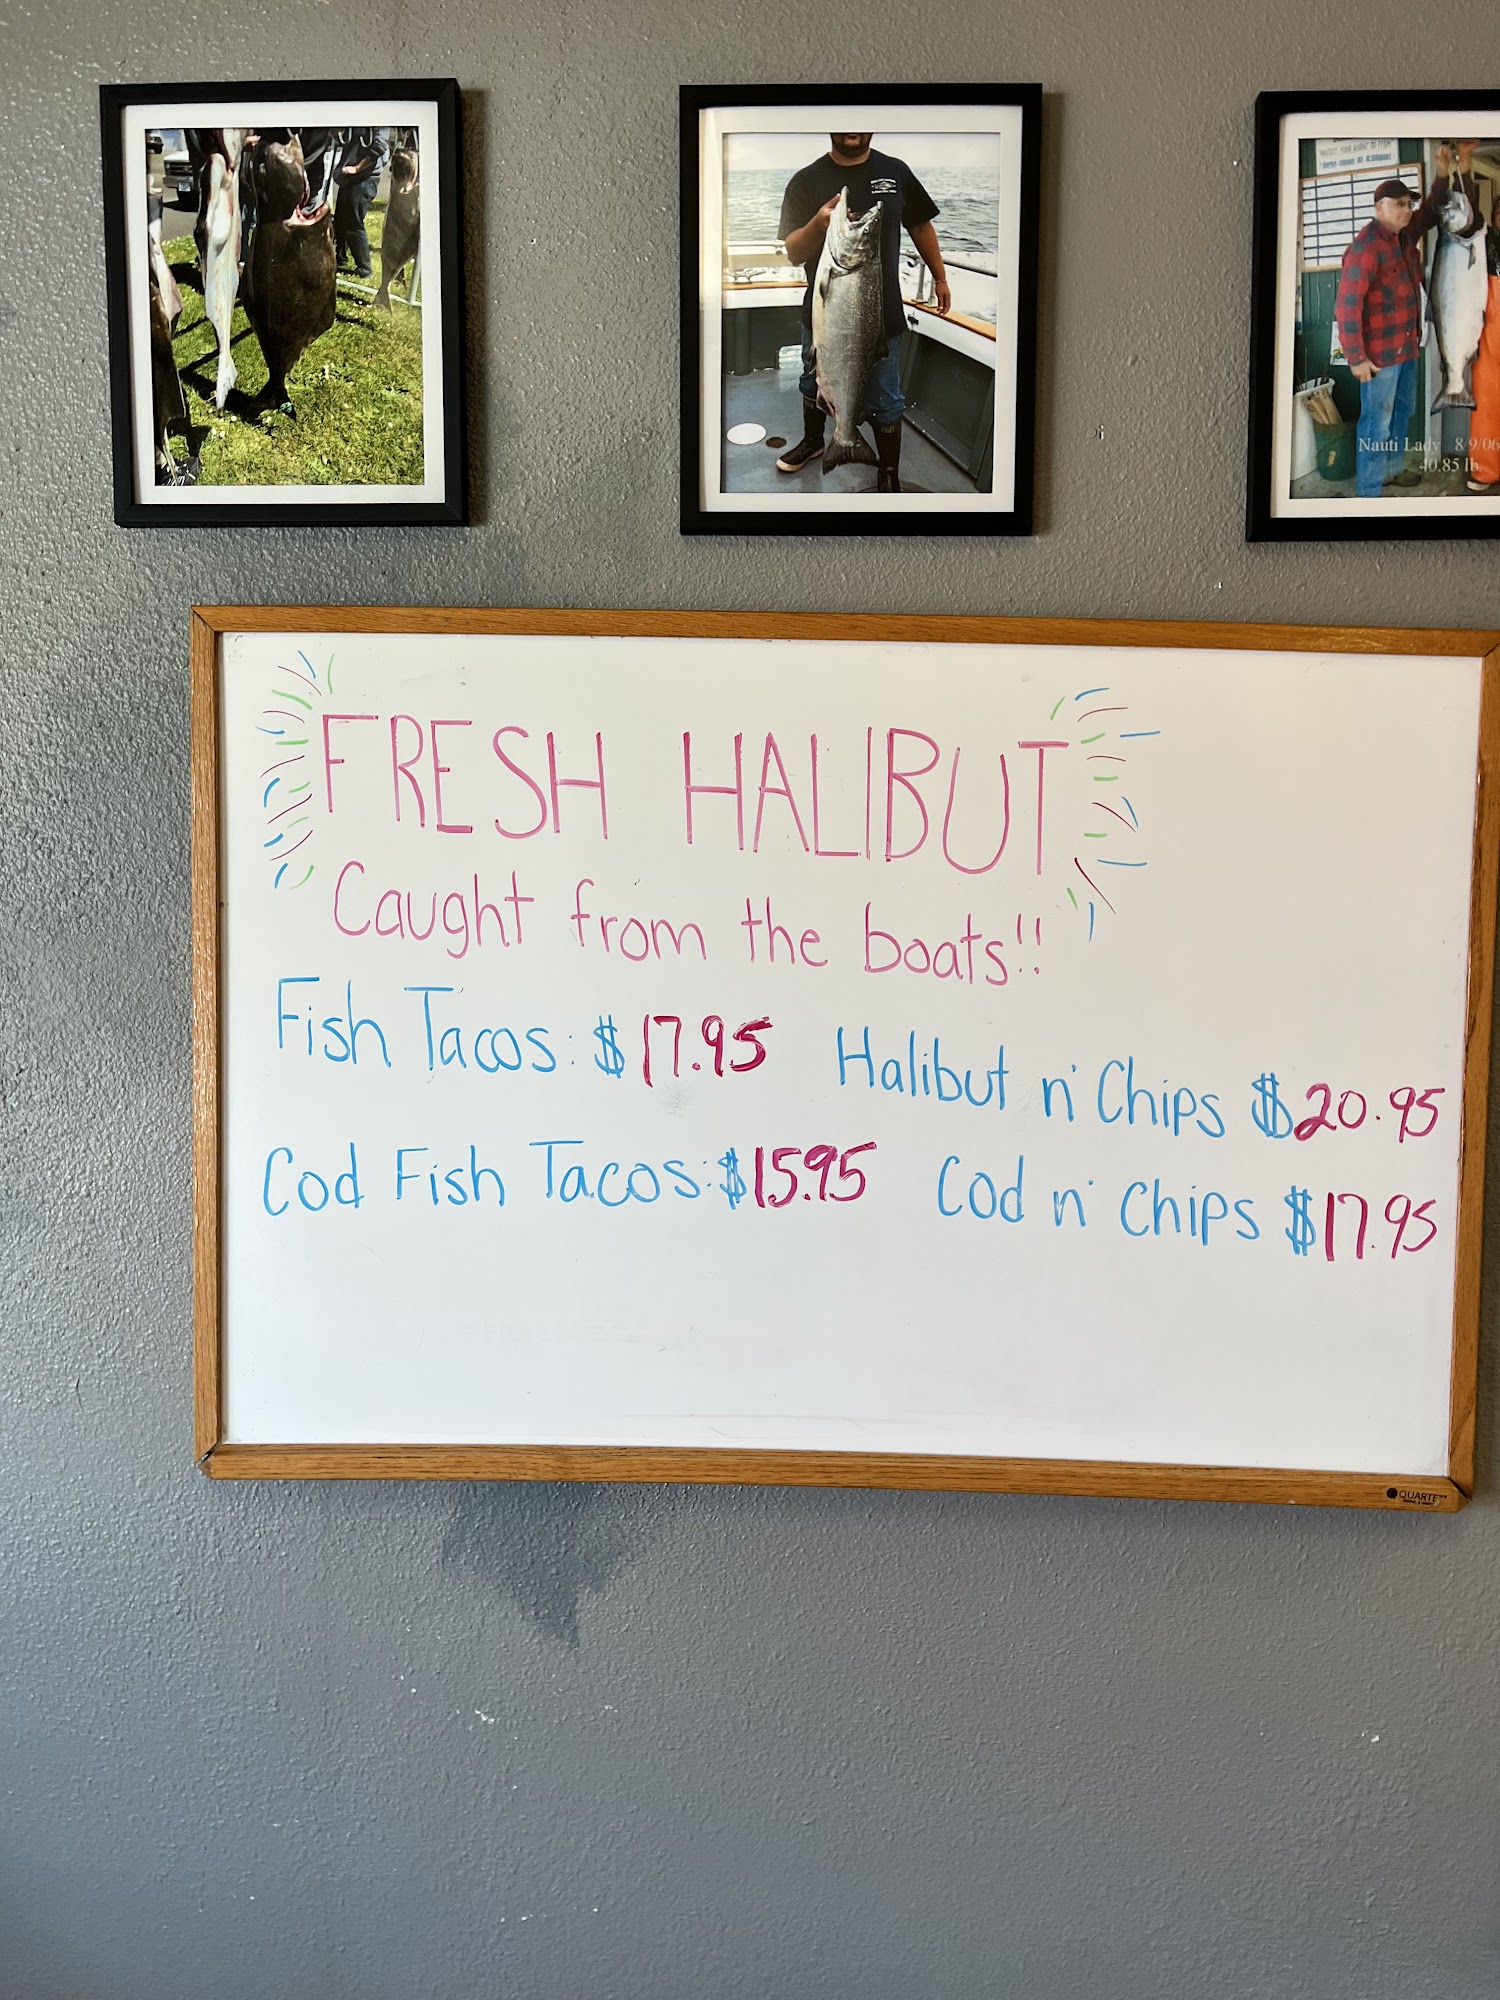 Nauti Lady 8/9/06
40.85 lb.
FRESH HALIBUT
Caught from the boats!!
Fish Tacos: $17.95 Halibut n' Chips $20.95
Cod Fish Tacos: $15.95 Cod n' Chips $17.95
QUARTET